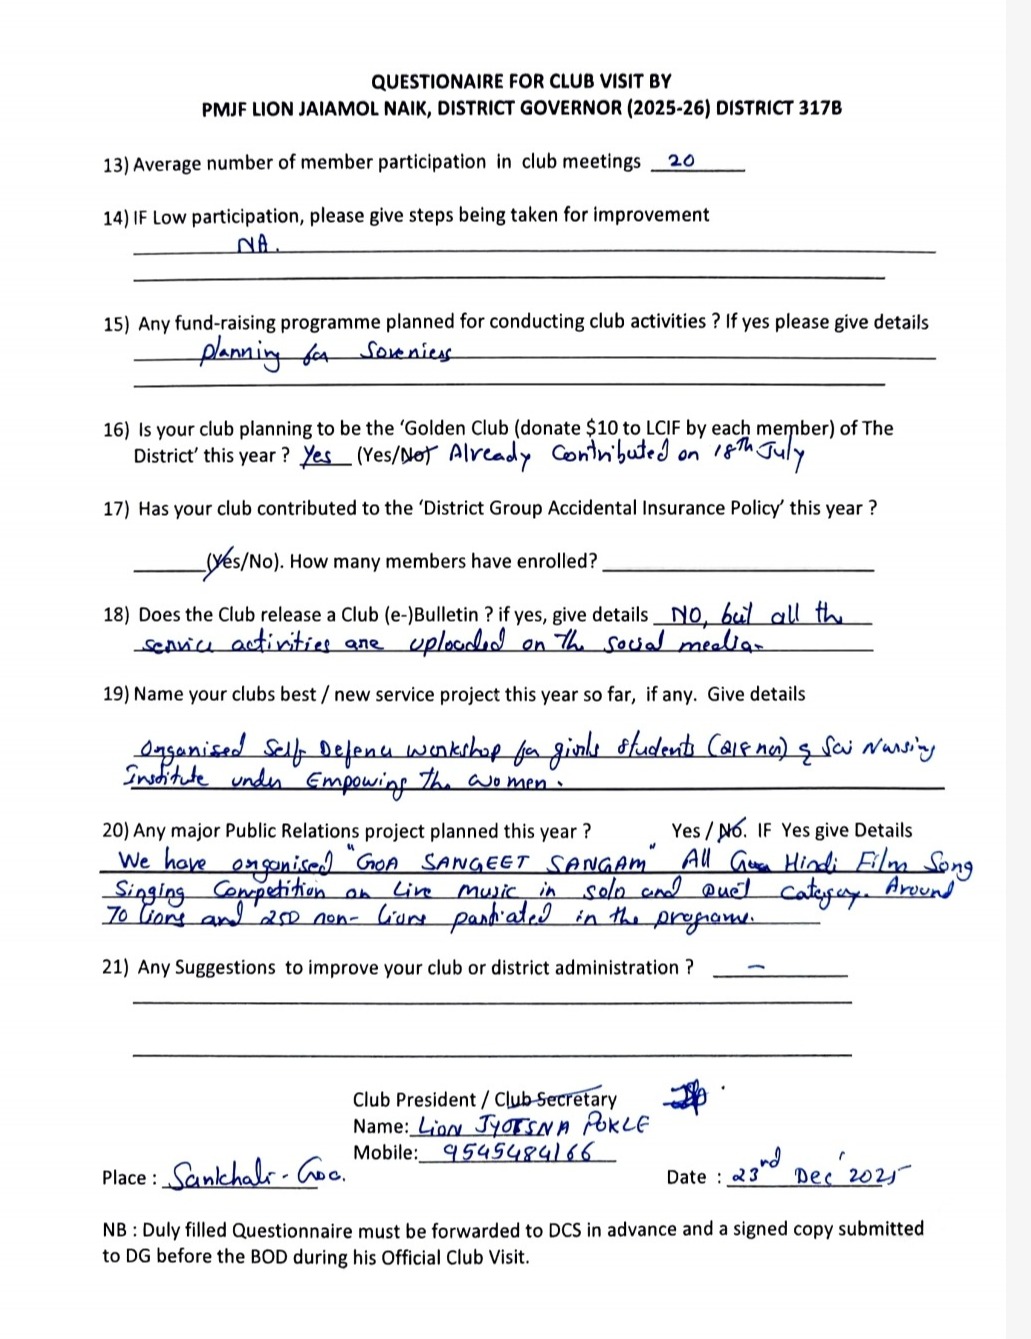 QUESTIONAIRE FOR CLUB VISIT BY
PMJF LION JAIAMOL NAIK, DISTRICT GOVERNOR (2025-26) DISTRICT 317B
13) Average number of member participation in club meetings 20
14) IF Low participation, please give steps being taken for improvement
NA.
15) Any fund-raising programme planned for conducting club activities ? If yes please give details
planning for
16) Is your club planning to be the ‘Golden Club (donate $10 to LCIF by each member) of The
District’ this year ? Yes (Yes/Not Already Contributed on 18th July
17) Has your club contributed to the ‘District Group Accidental Insurance Policy’ this year ?
(Yes/No). How many members have enrolled?
18) Does the Club release a Club (e-)Bulletin ? if yes, give details NO, but all the
service activities are uploaded on the social media-
19) Name your clubs best / new service project this year so far, if any. Give details
Organised Self Defence workshop for girls students Sai Nursing
Institute under Empowing the women.
20) Any major Public Relations project planned this year ? Yes / No. IF Yes give Details
We have organised "GOA SANGEET SANGAM" All Goa Hindi Film Song
Singing Competition on Live music in solo and Duet Category. Around
70 lions and 250 non- lions in the programe.
21) Any Suggestions to improve your club or district administration ? –
Club President / Club Secretary
Name: Lion JYOTSNA POKLE
Mobile: 9545484166
Place : Sankhali - Goa. Date : 23rd Dec' 2025
NB : Duly filled Questionnaire must be forwarded to DCS in advance and a signed copy submitted
to DG before the BOD during his Official Club Visit.